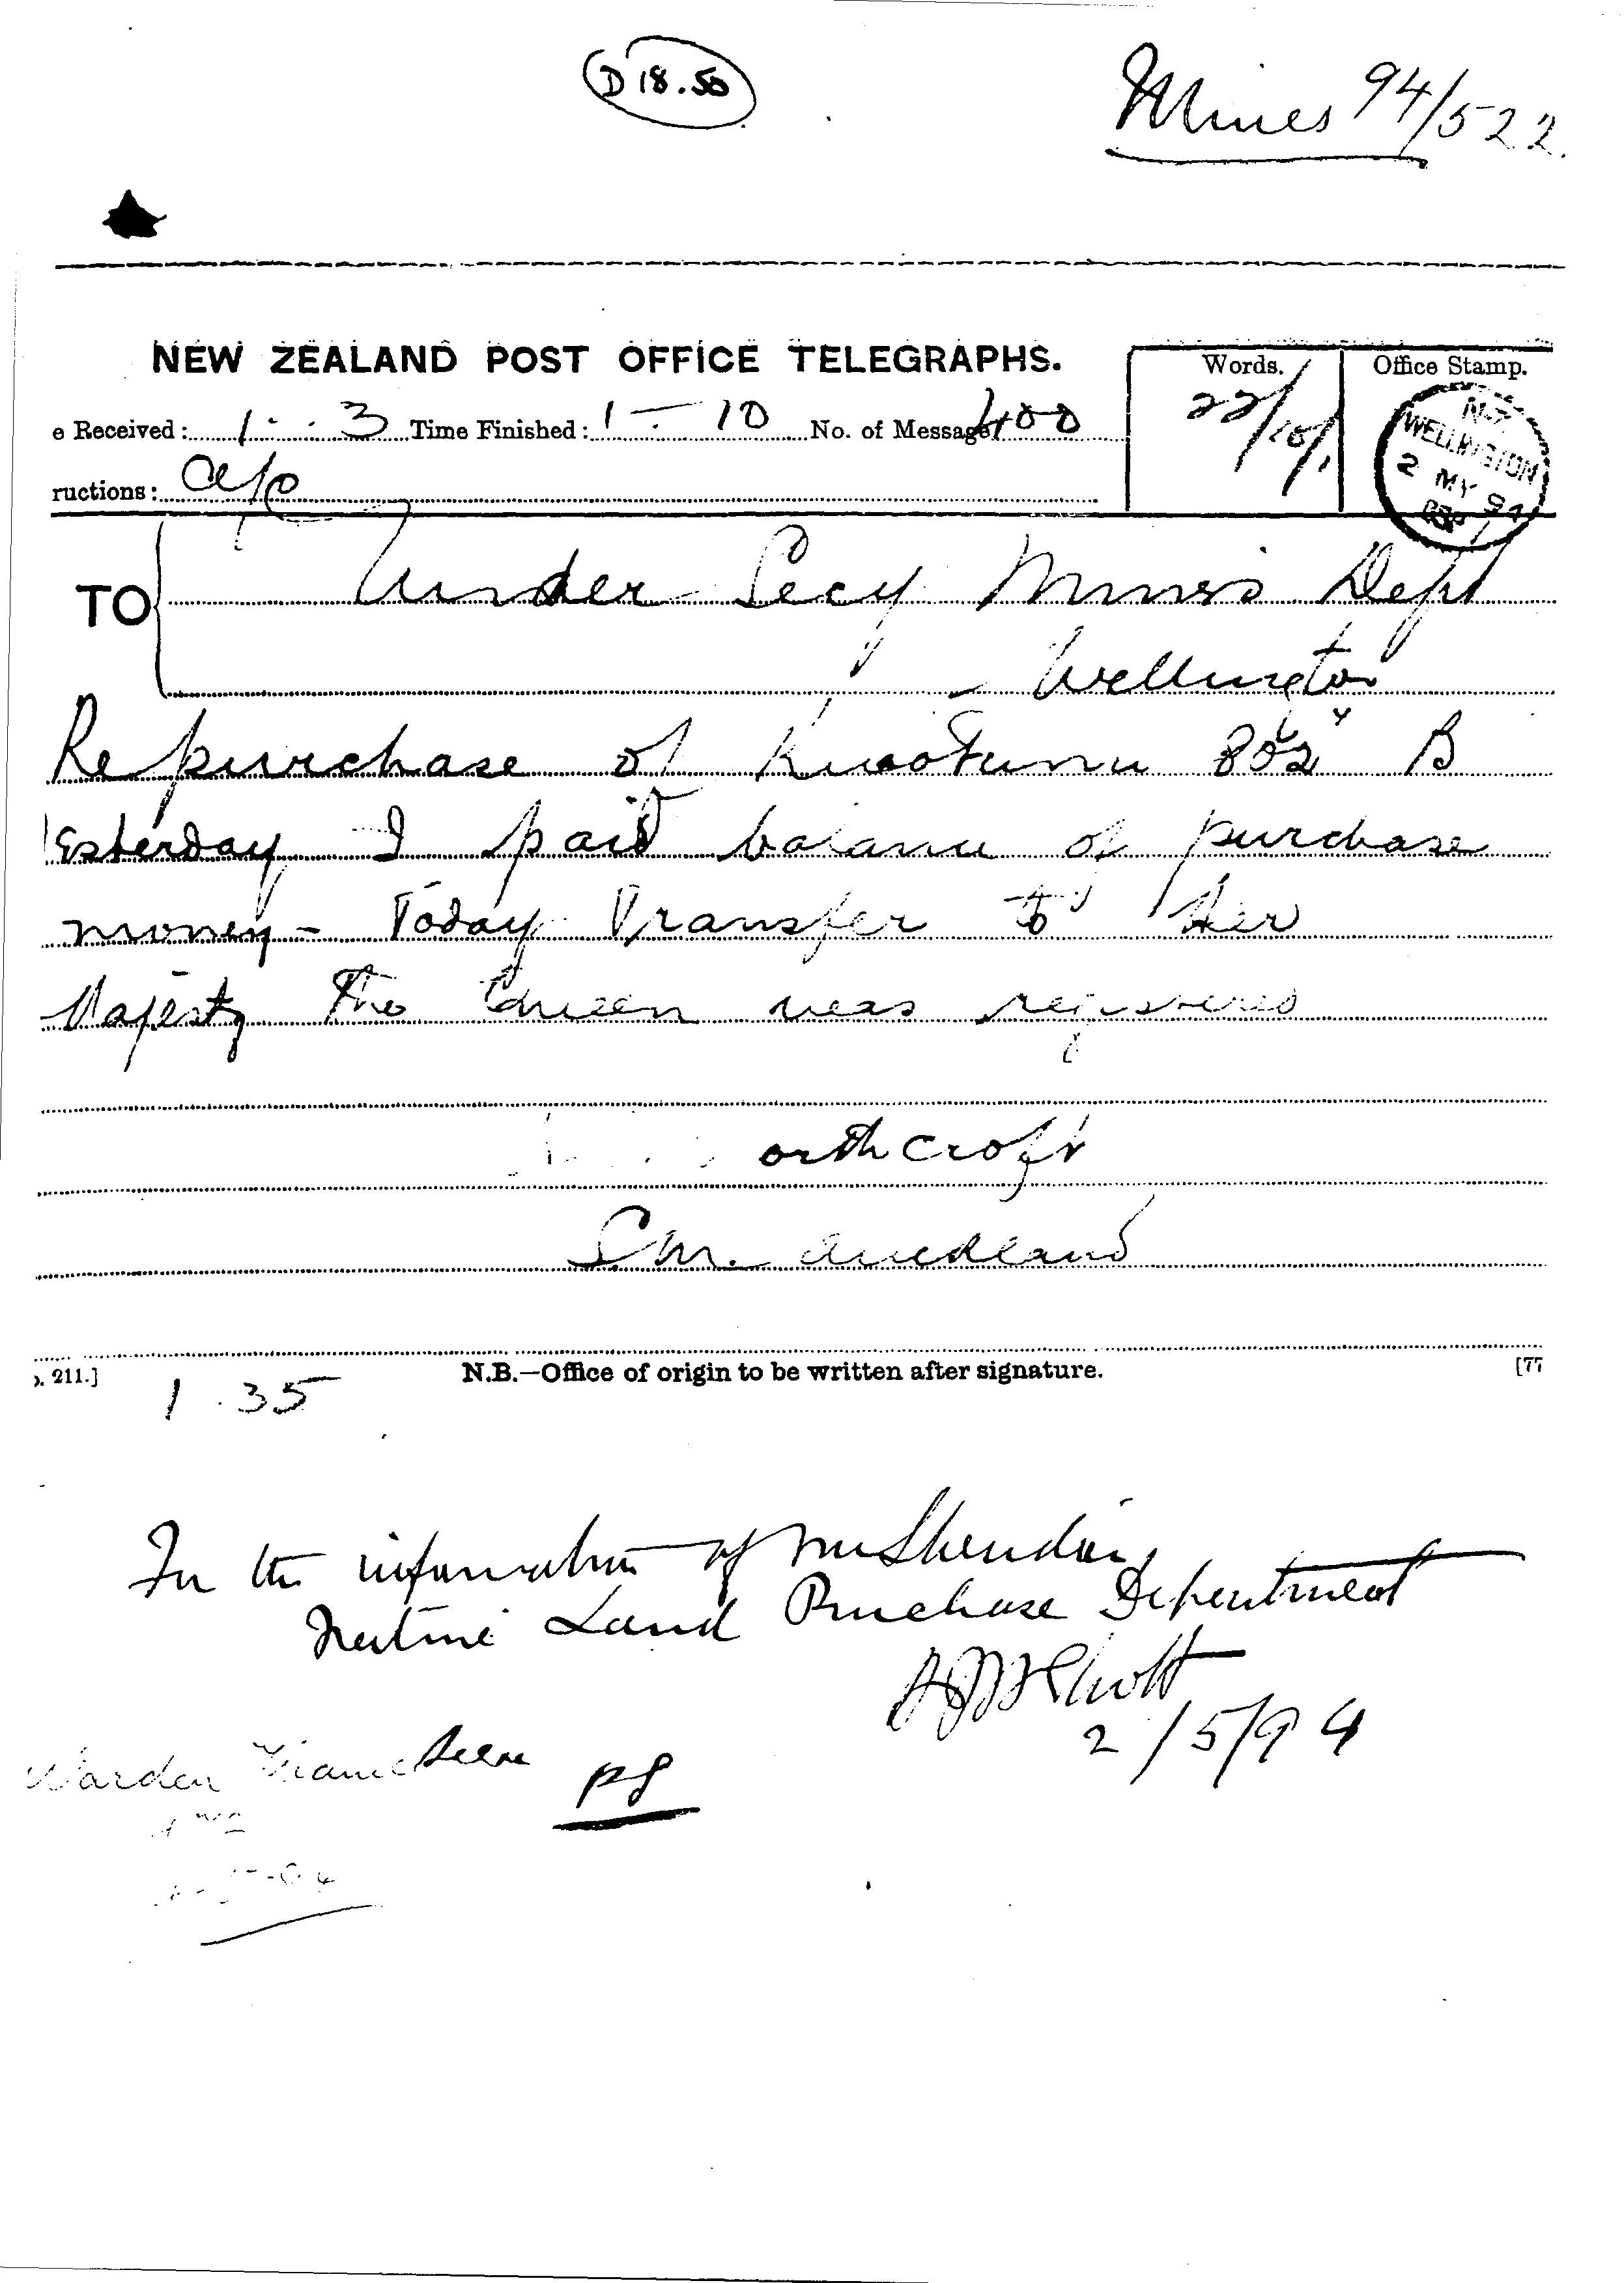 D 18.50
Mines 94/522.
NEW ZEALAND POST OFFICE TELEGRAPHS.
Words.
Office Stamp.
22/
e Received: 1 . 3 Time Finished: 1 - 10 No. of Message 400
N.Z.
WELLINGTON
2 MY 94
ructions:
TO
Under Secy Mines Dept
Wellington
Re purchase of Kuaotunu B
Yesterday I paid balance of purchase
money - Today Transfer to Her
Majesty The Queen was registered
orthcroft
S.M. Auckland
. 211.]
N.B.—Office of origin to be written after signature.
[77
1 . 35
For the information of Mr Sheridan
Native Land Purchase Department
2/5/94
Warden
Seen
PS